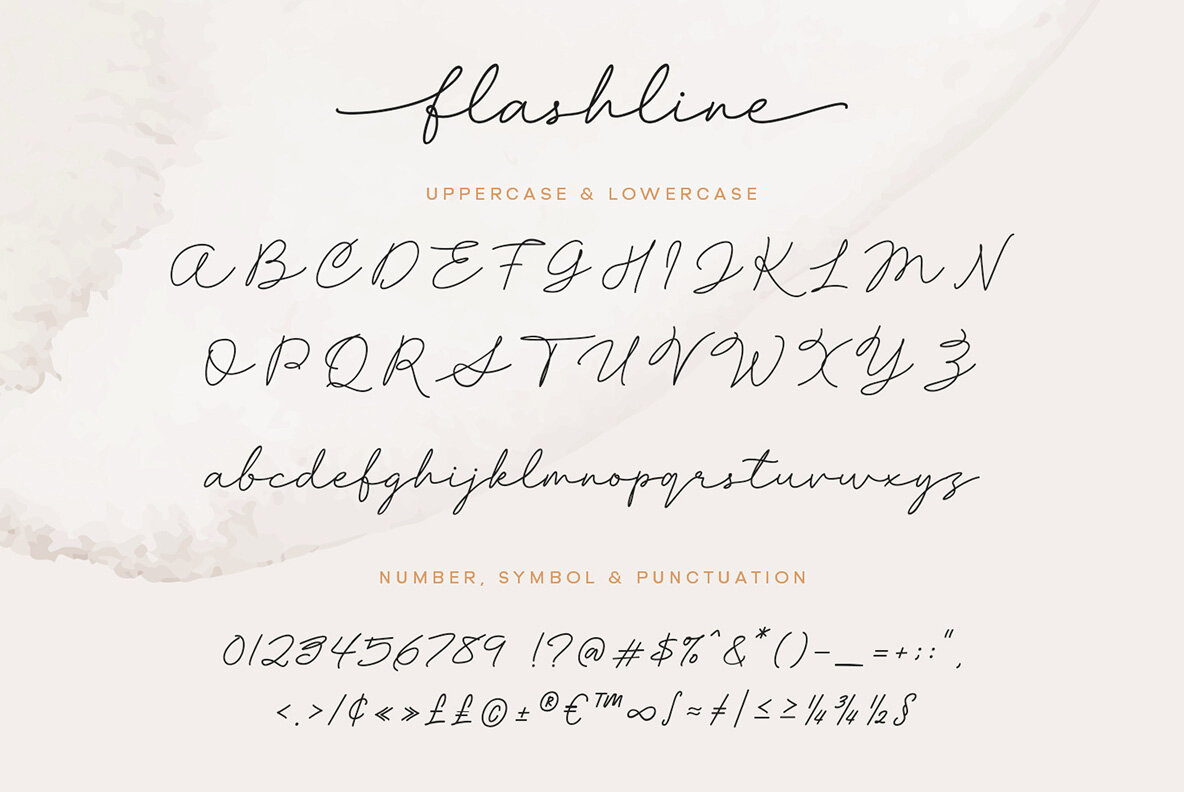 flashline
UPPERCASE & LOWERCASE
A B C D E F G H I J K L M N
O P Q R S T U V W X Y Z
abcdefghijklmnopqrstuvwxyz
NUMBER, SYMBOL & PUNCTUATION
0123456789 !?@#$%^&*()-_=+;:",
<.>/¢«»££©±®€™∞∫≈≠|≤≥¼¾½§